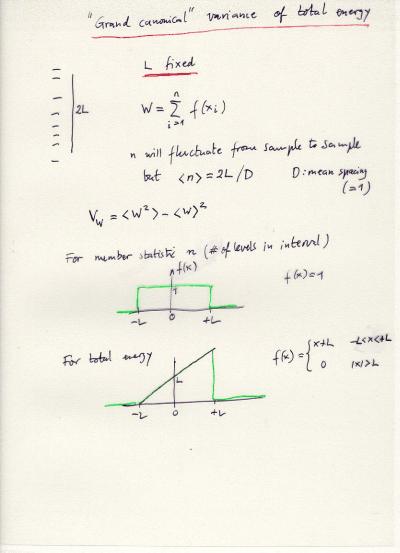 "Grand canonical" variance of total energy
L fixed
2L
W = ∑ f(xᵢ)
n
i=1
n will fluctuate from sample to sample
but <n> = 2L/D D: mean spacing
(=1)
V_W = <W²> - <W>²
For number statistic n (# of levels in interval)
f(x) f(x)=1
1
-L 0 +L
For total energy f(x) = { x+L -L<x<+L
0 |x|>L
L
-L 0 +L